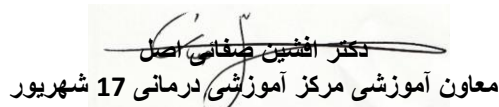 دکتر افشین صفائی اصل
معاون آموزشی مرکز آموزشی درمانی 17 شهریور